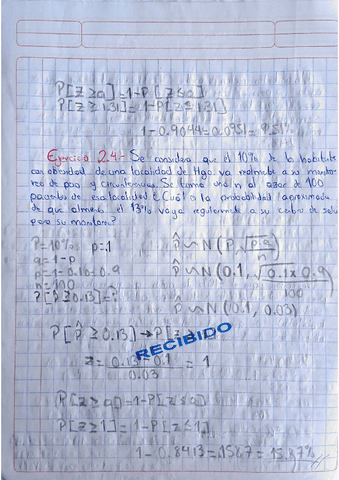 P[Z≥a]=1-P[Z≤a]
P[Z≥1.31]=1-P[Z≤1.31]
1-0.9044=0.0951=9.51%
Ejercicio 2.4- Se considera que el 10% de la habitante
con obesidad de una localidad de Hgo. va realmente a su monitoreo
reo de peso y circunferencia. Se toma una n al azar de 100
pacientes de esa localidad ¿Cuál la probabilidad aproximada
de que almenos el 13% vaya regularmente a su centro de salud
para su monitoreo?
P=10% p=.1
q=1-p
q=1-0.10=0.9
n=100
P[p̂≥0.13]=?
p̂~N(P,√p.q/n)
p̂~N(0.1,√0.1x0.9/100)
p̂~N(0.1, 0.03)
P[p̂≥0.13]→P[Z≥
RECIBIDO
Z=0.13-0.1/0.03=1
P[Z≥a]=1-P[Z≤a]
P[Z≥1]=1-P[Z≤1]
1-0.8413=.1587=15.87%